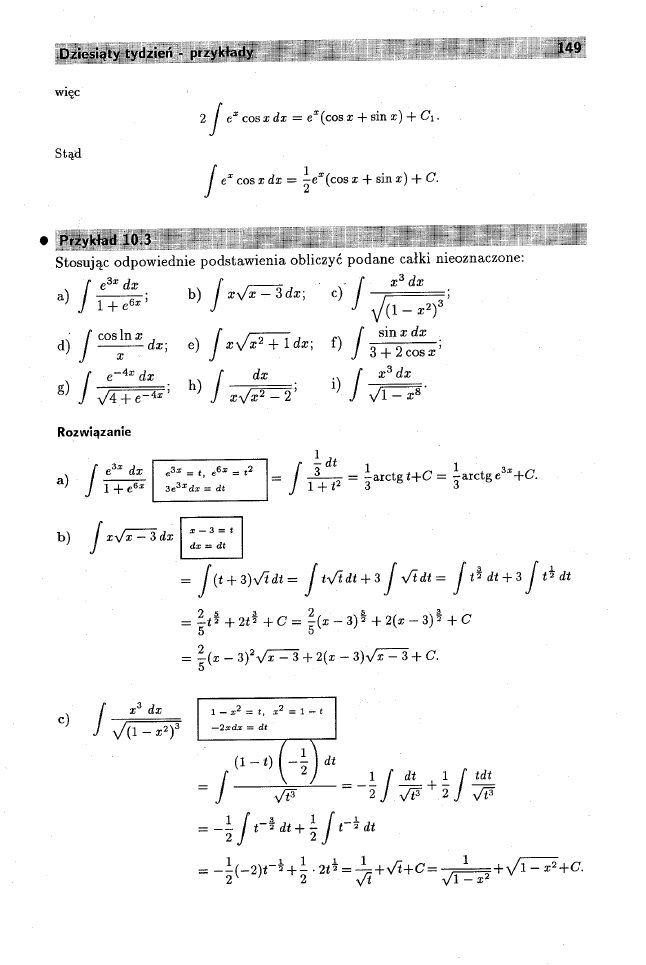 Dziesiąty tydzień - przykłady 149
więc
2 ∫ eˣ cos x dx = eˣ(cos x + sin x) + C₁.
Stąd
∫ eˣ cos x dx = \frac{1}{2}eˣ(cos x + sin x) + C.
• Przykład 10.3
Stosując odpowiednie podstawienia obliczyć podane całki nieoznaczone:
a) ∫ \frac{e^{3x} dx}{1 + e^{6x}}; b) ∫ x\sqrt{x − 3} dx; c) ∫ \frac{x^3 dx}{\sqrt{(1 − x^2)^3}};
d) ∫ \frac{cos ln x}{x} dx; e) ∫ x\sqrt{x^2 + 1} dx; f) ∫ \frac{sin x dx}{3 + 2 cos x};
g) ∫ \frac{e^{−4x} dx}{\sqrt{4 + e^{−4x}}}; h) ∫ \frac{dx}{x\sqrt{x^2 − 2}}; i) ∫ \frac{x^3 dx}{\sqrt{1 − x^8}}.
Rozwiązanie
a) ∫ \frac{e^{3x} dx}{1 + e^{6x}} | e^{3x} = t, e^{6x} = t^2 | 3e^{3x}dx = dt | = ∫ \frac{\frac{1}{3} dt}{1 + t^2} = \frac{1}{3}arctg t+C = \frac{1}{3}arctg e^{3x}+C.
b) ∫ x\sqrt{x − 3} dx | x − 3 = t | dx = dt |
= ∫ (t + 3)\sqrt{t} dt = ∫ t\sqrt{t} dt + 3 ∫ \sqrt{t} dt = ∫ t^{\frac{3}{2}} dt + 3 ∫ t^{\frac{1}{2}} dt
= \frac{2}{5}t^{\frac{5}{2}} + 2t^{\frac{3}{2}} + C = \frac{2}{5}(x − 3)^{\frac{5}{2}} + 2(x − 3)^{\frac{3}{2}} + C
= \frac{2}{5}(x − 3)^2\sqrt{x − 3} + 2(x − 3)\sqrt{x − 3} + C.
c) ∫ \frac{x^3 dx}{\sqrt{(1 − x^2)^3}} | 1 − x^2 = t, x^2 = 1 − t | −2xdx = dt |
= ∫ \frac{(1 − t)\left(−\frac{1}{2}\right) dt}{\sqrt{t^3}} = −\frac{1}{2} ∫ \frac{dt}{\sqrt{t^3}} + \frac{1}{2} ∫ \frac{tdt}{\sqrt{t^3}}
= −\frac{1}{2} ∫ t^{−\frac{3}{2}} dt + \frac{1}{2} ∫ t^{−\frac{1}{2}} dt
= −\frac{1}{2}(−2)t^{−\frac{1}{2}} + \frac{1}{2} · 2t^{\frac{1}{2}} = \frac{1}{\sqrt{t}} + \sqrt{t} + C = \frac{1}{\sqrt{1 − x^2}} + \sqrt{1 − x^2} + C.